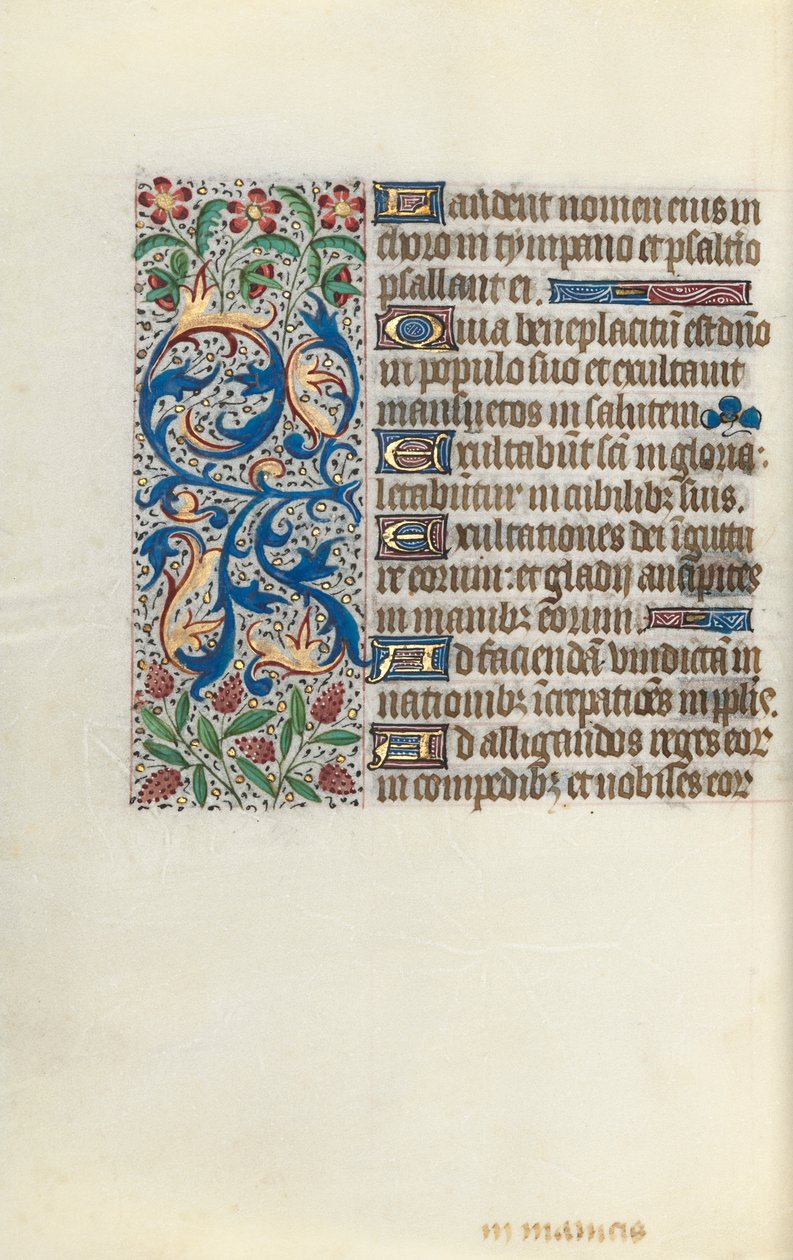 Laudent nomen eius in
choro in tympano et psaltio
psallant ei.
Quia beneplacitū est dño
in populo suo et exultauit
mansuetos in salutem
Exultabūt sc̄i in gloria:
letabūtur in cubilibꝫ suis.
Exultationes dei ī guttu
re eorum: et gladij ancipites
in manibꝫ eorum.
Ad faciendā vindictā in
nationibꝫ īcrepatiōes in pplis.
Ad alligandos reges eoꝝ
in compedibꝫ et nobiles eoꝝ
in manicis